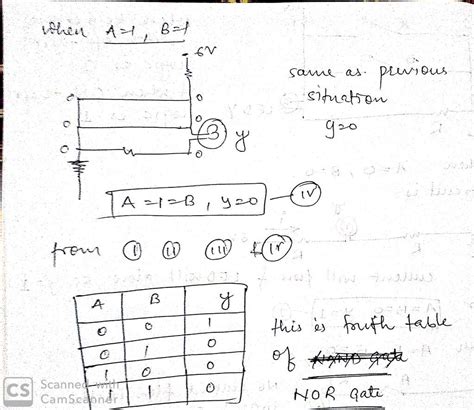 when A=1, B=1
6V
same as previous
situation
y=0
B y
A=1=B, y=0 IV
from I II III & IV
A B y
0 0 1
0 1 0
1 0 0
1 0
this is fourth table
of NAND gate
NOR gate
CS Scanned with
CamScanner